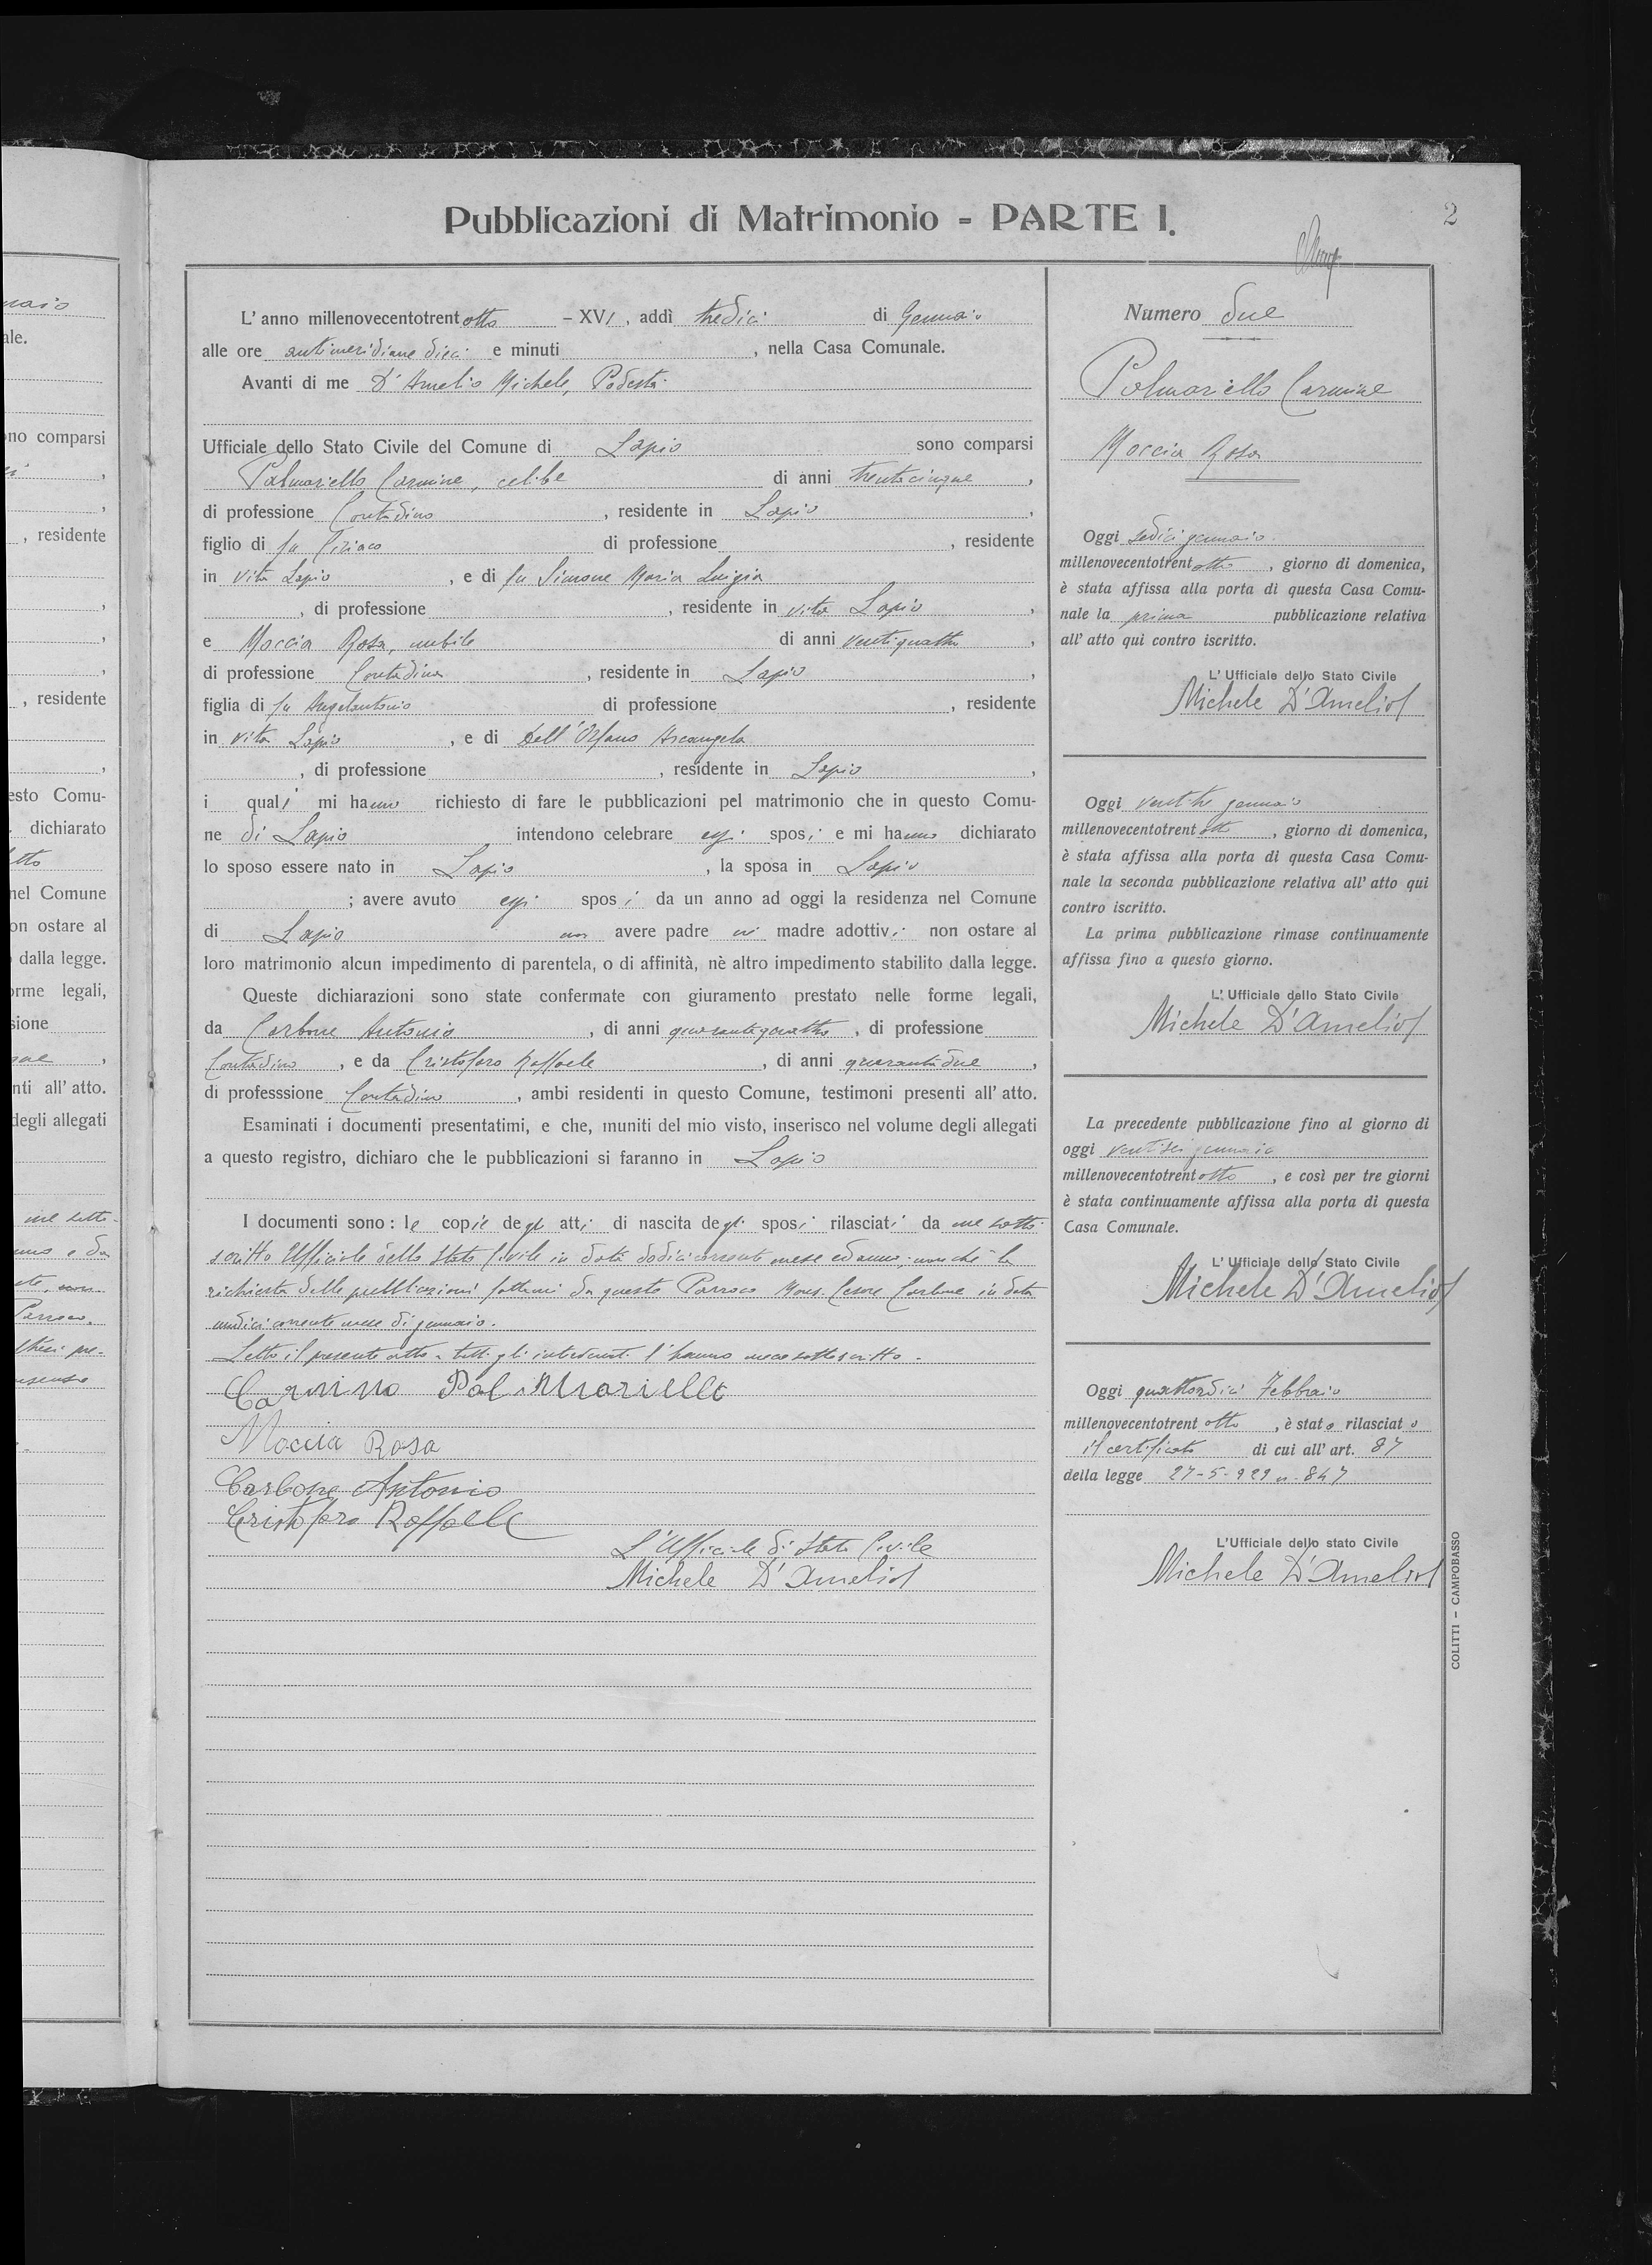 Pubblicazioni di Matrimonio - PARTE I.
2
L'anno millenovecentotrent otto - XVI, addì tredici di Gennaio
alle ore antimeridiane dieci e minuti , nella Casa Comunale.
Avanti di me D'Amelio Michele, Podestà
Ufficiale dello Stato Civile del Comune di Lapio sono comparsi
Palmariello Carmine, celibe di anni trentacinque ,
di professione Contadino , residente in Lapio ,
figlio di fu Ciriaco di professione , residente
in vita Lapio , e di fu Simone Maria Luigia
, di professione , residente in vita Lapio ,
e Moccia Rosa, nubile di anni ventiquattro ,
di professione Contadina , residente in Lapio ,
figlia di fu Angelantonio di professione , residente
in vita Lapio , e di Dell'Orfano Arcangela
, di professione , residente in Lapio ,
i quali mi hanno richiesto di fare le pubblicazioni pel matrimonio che in questo Comu-
ne di Lapio intendono celebrare essi sposi e mi hanno dichiarato
lo sposo essere nato in Lapio , la sposa in Lapio
; avere avuto essi sposi da un anno ad oggi la residenza nel Comune
di Lapio non avere padre nè madre adottivi non ostare al
loro matrimonio alcun impedimento di parentela, o di affinità, nè altro impedimento stabilito dalla legge.
Queste dichiarazioni sono state confermate con giuramento prestato nelle forme legali,
da Carbone Antonio , di anni quarantaquattro , di professione
Contadino , e da Cristofaro Raffaele , di anni quarantadue ,
di professsione Contadino , ambi residenti in questo Comune, testimoni presenti all'atto.
Esaminati i documenti presentatimi, e che, muniti del mio visto, inserisco nel volume degli allegati
a questo registro, dichiaro che le pubblicazioni si faranno in Lapio
I documenti sono: le copie degli atti di nascita degli sposi rilasciati da me sotto-
scritto Ufficiale dello Stato Civile in data dodici corrente mese ed anno, nonchè la
richiesta delle pubblicazioni fattami da questo Parroco Mons. Cesare Carbone in data
undici corrente mese di gennaio.
Letto il presente atto a tutti gli intervenuti l'hanno meco sottoscritto.
Carmino Palmariello
Moccia Rosa
Carbone Antonio
Cristofaro Raffaele
L'Ufficiale di Stato Civile
Michele D'Amelio
Numero due
Palmariello Carmine
Moccia Rosa
Oggi sedici gennaio
millenovecentotrent otto , giorno di domenica,
è stata affissa alla porta di questa Casa Comu-
nale la prima pubblicazione relativa
all'atto qui contro iscritto.
L'Ufficiale dello Stato Civile
Michele D'Amelio
Oggi ventitre gennaio
millenovecentotrent otto , giorno di domenica,
è stata affissa alla porta di questa Casa Comu-
nale la seconda pubblicazione relativa all'atto qui
contro iscritto.
La prima pubblicazione rimase continuamente
affissa fino a questo giorno.
L'Ufficiale dello Stato Civile
Michele D'Amelio
La precedente pubblicazione fino al giorno di
oggi ventisei gennaio
millenovecentotrent otto , e così per tre giorni
è stata continuamente affissa alla porta di questa
Casa Comunale.
L'Ufficiale dello Stato Civile
Michele D'Amelio
Oggi quattordici Febbraio
millenovecentotrent otto , è stato rilasciato
il certificato di cui all'art. 87
della legge 27-5-929 n. 847
L'Ufficiale dello stato Civile
Michele D'Amelio
COLITTI - CAMPOBASSO
naio
ale.
no comparsi
, residente
, residente
esto Comu-
dichiarato
nel Comune
on ostare al
dalla legge.
rme legali,
sione
nti all'atto.
degli allegati